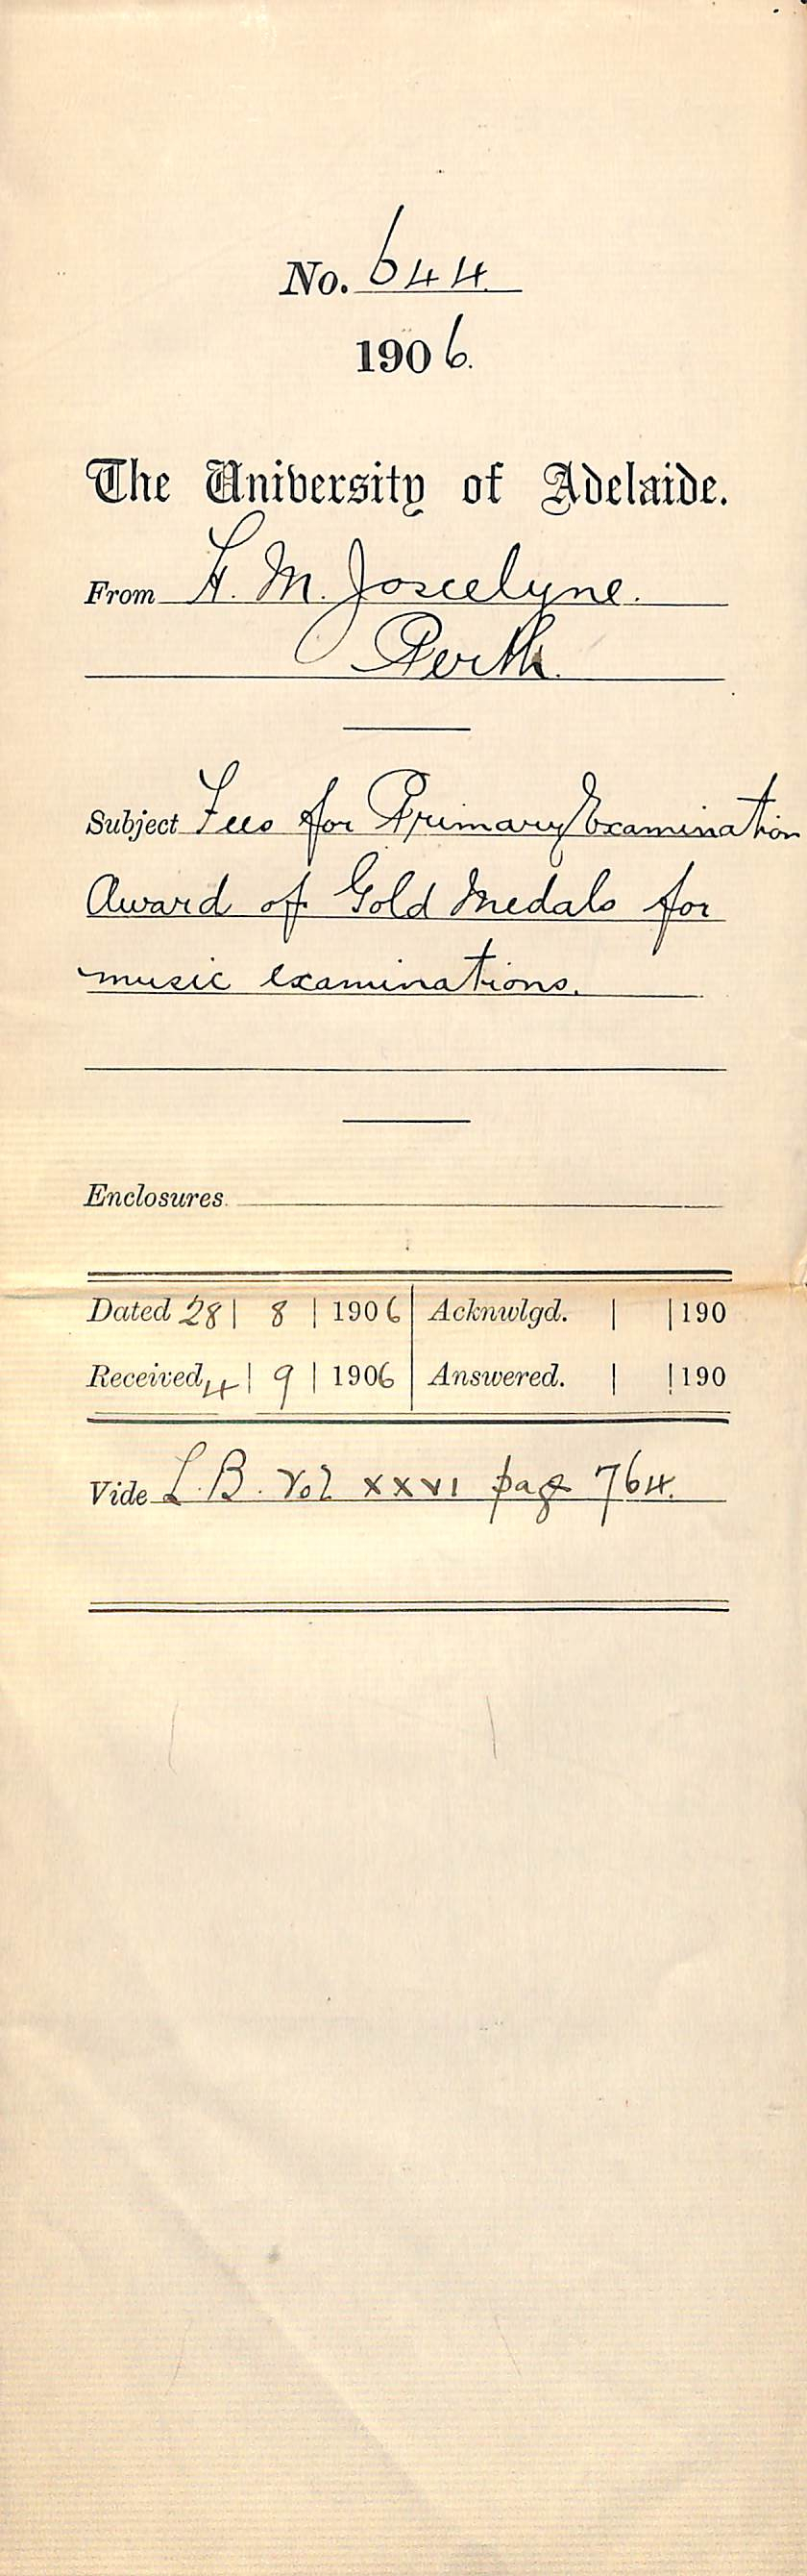 No. 644.
1906.
The University of Adelaide.
From F. M. Joscelyne.
Perth.
Subject Fees for Primary Examination
Award of Gold Medals for
music examinations.
Enclosures.
Dated 28 | 8 | 1906 | Acknwlgd. | | 190
Received 4 | 9 | 1906 | Answered. | | 190
Vide L.B. Vol XXVI page 764.